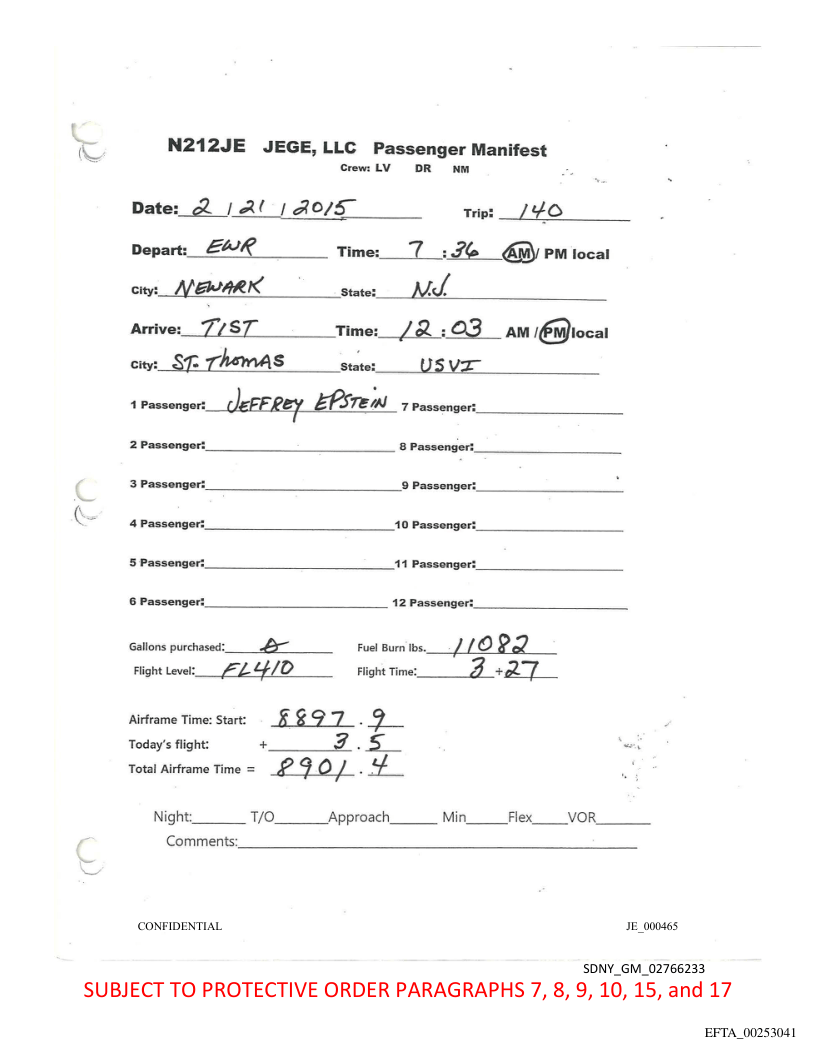 N212JE JEGE, LLC Passenger Manifest
Crew: LV DR NM
Date: 2 / 21 / 2015 Trip: 140
Depart: EWR Time: 7 : 36 AM / PM local
City: NEWARK State: N.J.
Arrive: TIST Time: 12 : 03 AM / PM local
City: ST. THOMAS State: USVI
1 Passenger: JEFFREY EPSTEIN 7 Passenger:
2 Passenger: 8 Passenger:
3 Passenger: 9 Passenger:
4 Passenger: 10 Passenger:
5 Passenger: 11 Passenger:
6 Passenger: 12 Passenger:
Gallons purchased: 0 Fuel Burn lbs. 11082
Flight Level: FL410 Flight Time: 3 + 27
Airframe Time: Start: 8897 . 9
Today's flight: + 3 . 5
Total Airframe Time = 8901 . 4
Night: T/O Approach Min Flex VOR
Comments:
CONFIDENTIAL JE_000465
SDNY_GM_02766233
SUBJECT TO PROTECTIVE ORDER PARAGRAPHS 7, 8, 9, 10, 15, and 17
EFTA_00253041